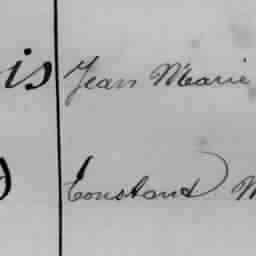 is Jean Marie
Constant